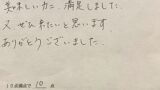 美味しいカニ、満足しました。
又、ぜひ来たいと思います
ありがとうございました。
10点満点で 10 点